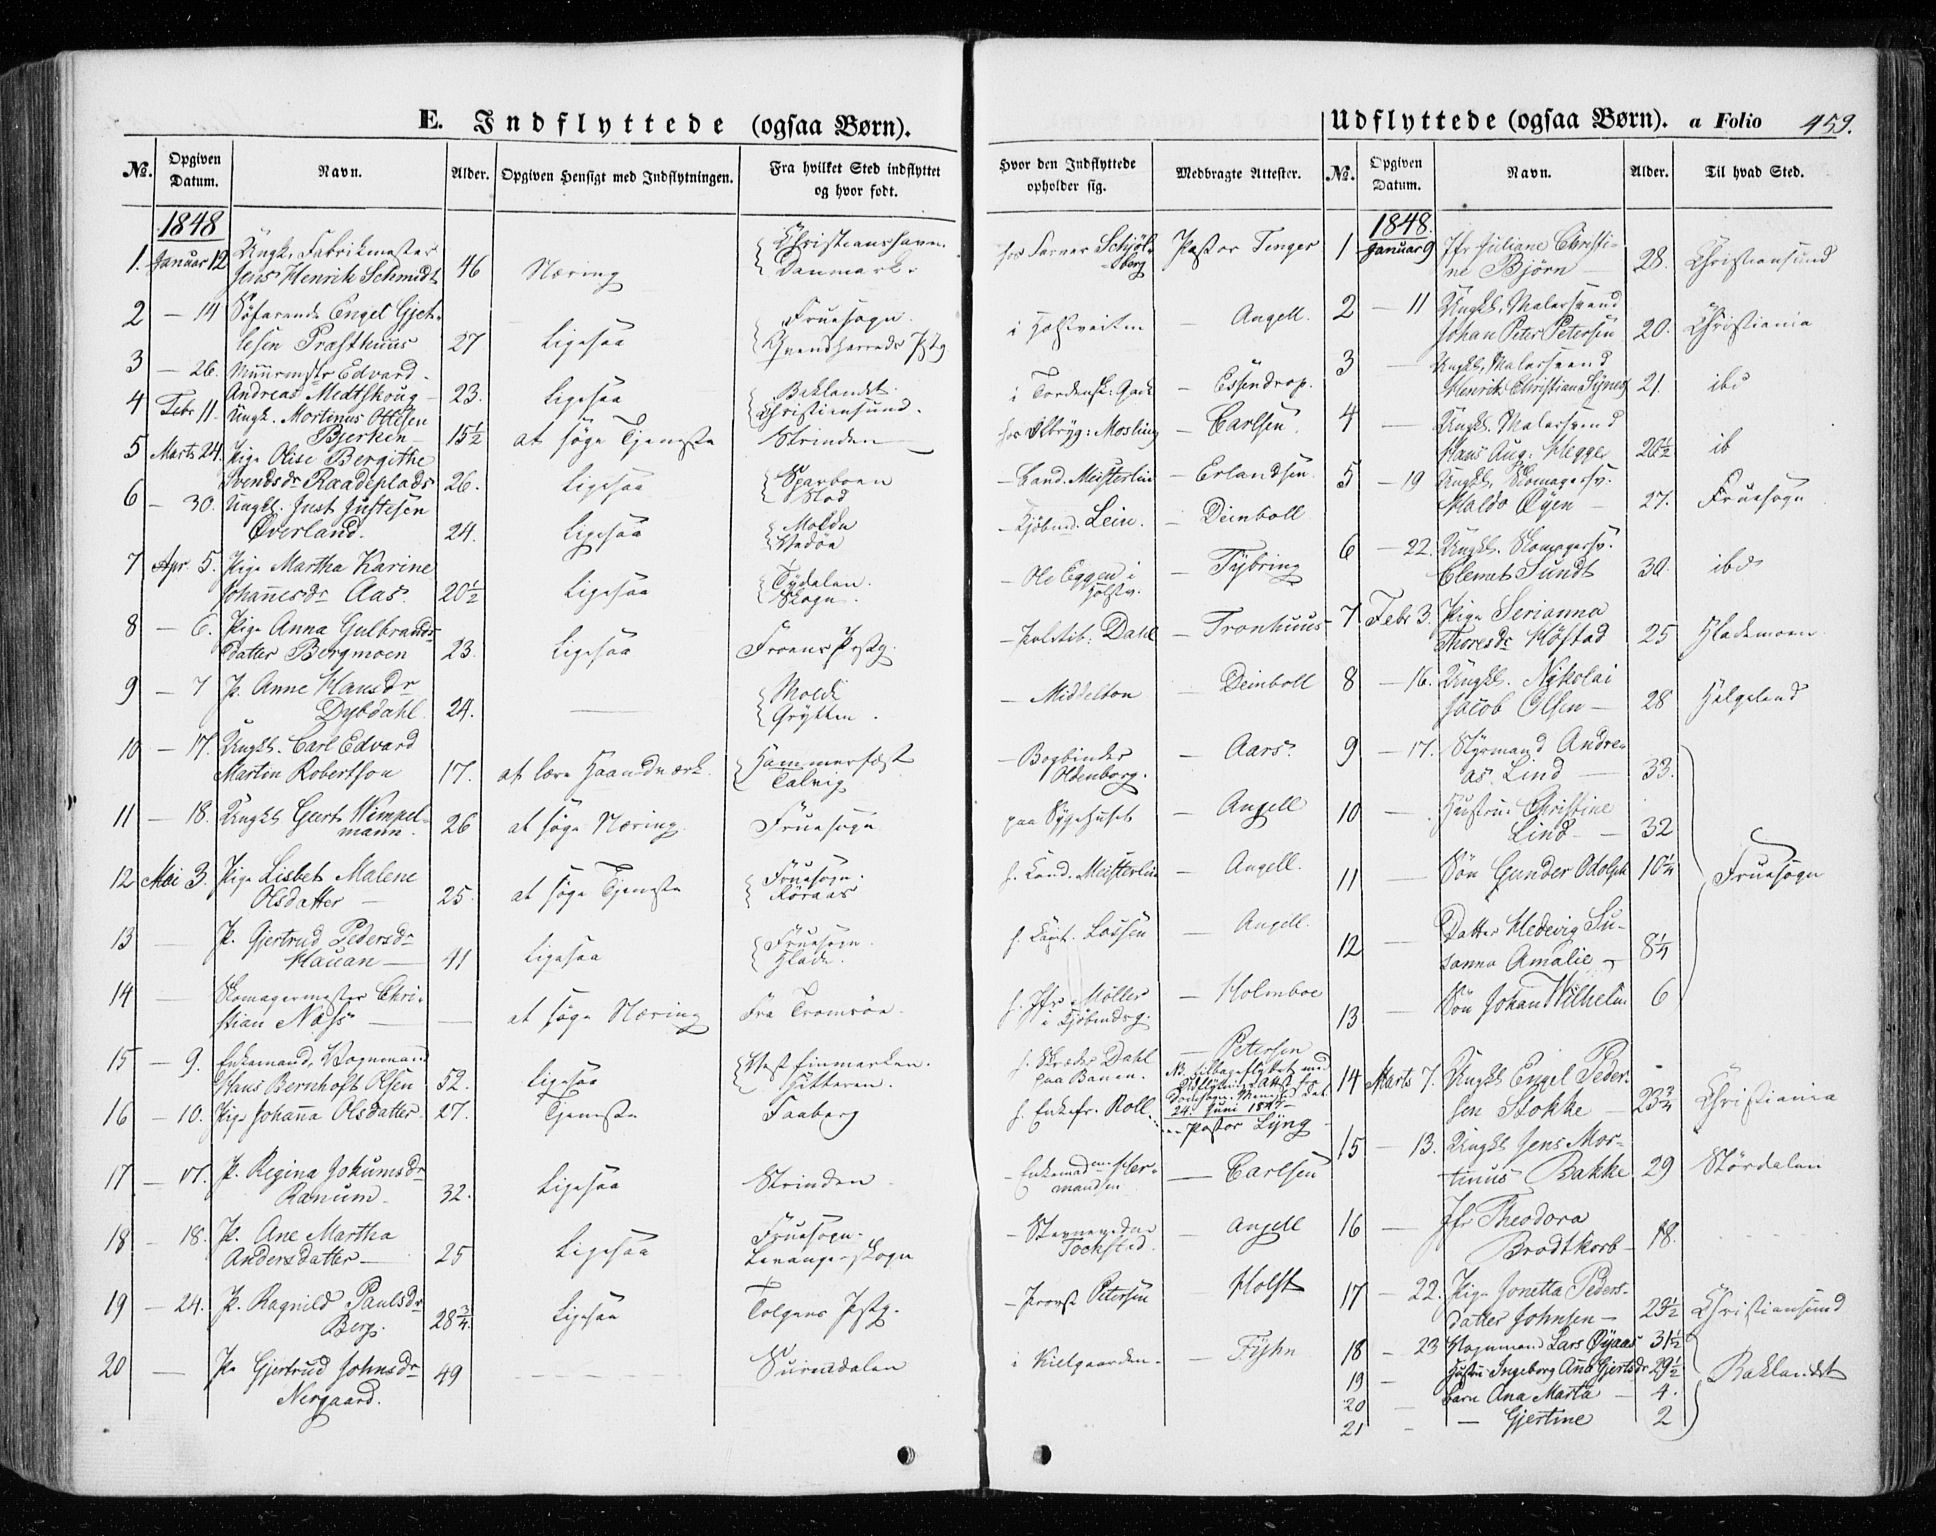 E. Indflyttede (ogsaa Børn).
Udflyttede (ogsaa Børn). a Folio 459.
No. Opgiven Datum. Navn. Alder. Opgiven Hensigt med Indflytningen. Fra hvilket Sted indflyttet og hvor født. Hvor den Indflyttede opholder sig. Medbragte Attester.
1848
1. Januar 12 Ungk. Fabrikmester Jens Henrik Schmidt 46 Næring Christianshavn. Danmark. hos Farver Schjölberg Pastor Tenger
2 — 14 Söfarende Engel Gjetlesen Præsthuus 27 Ligesaa Fruesogn. Qvendherreds Pstg i Holtveiten — Angell.
3 — 26. Muurmstr Edvard Andreas Medtskoug 23. Ligesaa Baklandet. Christiansund. i Tordensk: Gade — Essendrop.
4 Febr 11. Ungk. Mortinus Ottesen Bjerken 15½ at söge Tjeneste Strinden hos Ølbryg: Mosling — Carlsen.
5 Marts 24. Pige Olise Bergithe Svendsdr Raadeplads 26. Ligesaa Sparboen Stod — Cand. Meisterlin — Erlandsen
6 — 30. Ungkl. Just Justesen Øverland. 24. Ligesaa Molde Vedöe — Kjöbmd. Lein. — Deinboll
7 Apr 5. Pige Martha Karine Johannesdr Aas. 20½ Ligesaa Tydalen. Skogn. — Ole Eggen i Holstv. — Tybring
8 — 6. Pige Anna Gulbrandsdatter Bergmoen 23. Ligesaa Froens Pstg. — Dahl — Tronhuus
9 — 7 P. Anne Hansdr Dybdahl. 24. — Molde Grytten. — Middelton — Deinboll
10 — 17. Ungkl. Carl Edvard Martin Robertson 17. at lære Haandværk. Hammerfest Talvig — Bogbinder Oldenborg. — Aars.
11 — 18. Ungkl Gurt Wimpelmann. 26 at söge Næring. Fruesogn paa Sygehuset — Angell
12 Mai 3. Pige Lisbet Malene Olsdatter — 25. at söge Tjeneste Fruesogn. Röraas h. Cand. Meisterlin — Angell.
13 — P. Gjertrud Pedersdr Hauan — 41 Ligesaa Fruesogn. Hlade. h. Capt. Lossen — Angell.
14 — Skomagermester Christian Næss — — at söge Næring Fra Tromsöe. h. Jfr Möller i Kjöbmdsg. — Holmboe
15 — 9. Enkemand, Vognmand Hans Bernhoft Olsen 52. Ligesaa Vest finmarken. Hitteren. h. Skreder Dahl paa Banen. — Petersen
NB. tilbageflyttet med Udflytn. Attest fra Domsogn. Menighed Dat. 24. Juni 1847
16 — 10. Pige Johanna Olsdatter. 27. Tjeneste Faaberg h. Enkefr. Roll. — Pastor Lyng
17 — 17. P. Regina Jokumsdr Ranum. 32. Ligesaa Strinden. — Enkemadme Hermandsen — Carlsen
18 — 18. P. Ane Martha Andersdatter — 25 Ligesaa Fruesogn. Levanger-Skogn — Tockstad. — Angell
19 — 24. P. Ragnild Paulsdr Berg. 28¾ Ligesaa Tolgens Pstg. — Provst Petersen Holst
20 — Pe Gjertrud Johnsdr Nergaard. 49 — Surendalen i Kielgaarden. — Fyhn
No. Opgiven Datum. Navn. Alder. Til hvad Sted.
1848.
1 Januar 9 Jfr Juliane Christine Björn — 28. Christiansund
2 — 11 Ungkl. Malersvend Johan Peter Petersen 20. Christiania
3 — Ungkl. Malersvend Henrik Christian Synes 21. ibd
4 — Ungkl. Malersvend Hans Aug: Hegge 20½ ib
5 — 19 Ungkl. Skomagersv. Haldo Øyen — 27. Fruesogn
6 — 22. Ungkl. Skomagersv. Clemet Sundt 30. ibd
7 Febr 3. Pige Serianna Thoresdr Höstad 25 Hlademoen
8 — 16. Ungkl. Nykolai Jacob Olsen — 28 Helgeland
9 — 17. Styrmand Andreas Lind — 33.
10 — Hustru Christine Lind — 32
11 — Sön Gunder Adolph 10¼ Fruesogn
12 — Datter Hedevig Susanna Amalie 8¼
13 — Sön Johan Wilhelm 6
14 Marts 7. Ungkl Engel Pedersen Stokke — 23¾ Christiania
15 — 13. Ungkl Jens Mortinus Bakke 29 Stördalen
16 — Jfr Theodora Brodtkorb — 18.
17 — 22. Pige Jonetta Pedersdatter Johnsen — 23½ Christiansund
18 — 23 Vognmand Lars Øyaas 31½
19 Hustru Ingeborg Ana Gjertsdr 29½ Baklandet
20 — barn Ana Marta — 4.
21 - — Gjertine 2